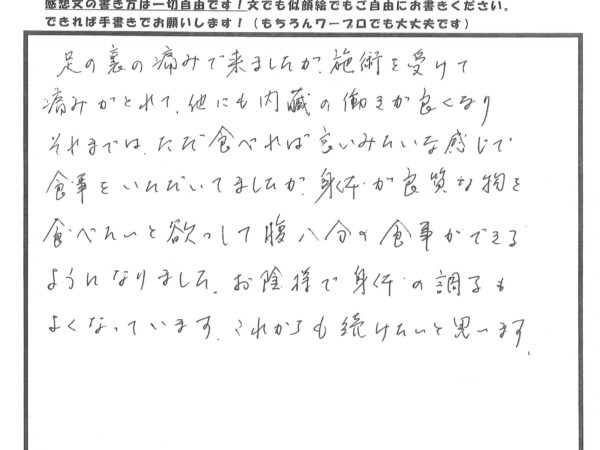 感想文の書き方は一切自由です！文でも似顔絵でもご自由にお書きください。
できれば手書きでお願いします！（もちろんワープロでも大丈夫です）
足の裏の痛みで来ましたが、施術を受けて
痛みがとれて、他にも内臓の働きが良くなり
それまでは、ただ食べれば良いみたいな感じで
食事をいただいてましたが、身体が良質な物を
食べたいと欲っして腹八分の食事ができる
ようになりました。お陰様で身体の調子も
よくなっています。これからも続けたいと思います。